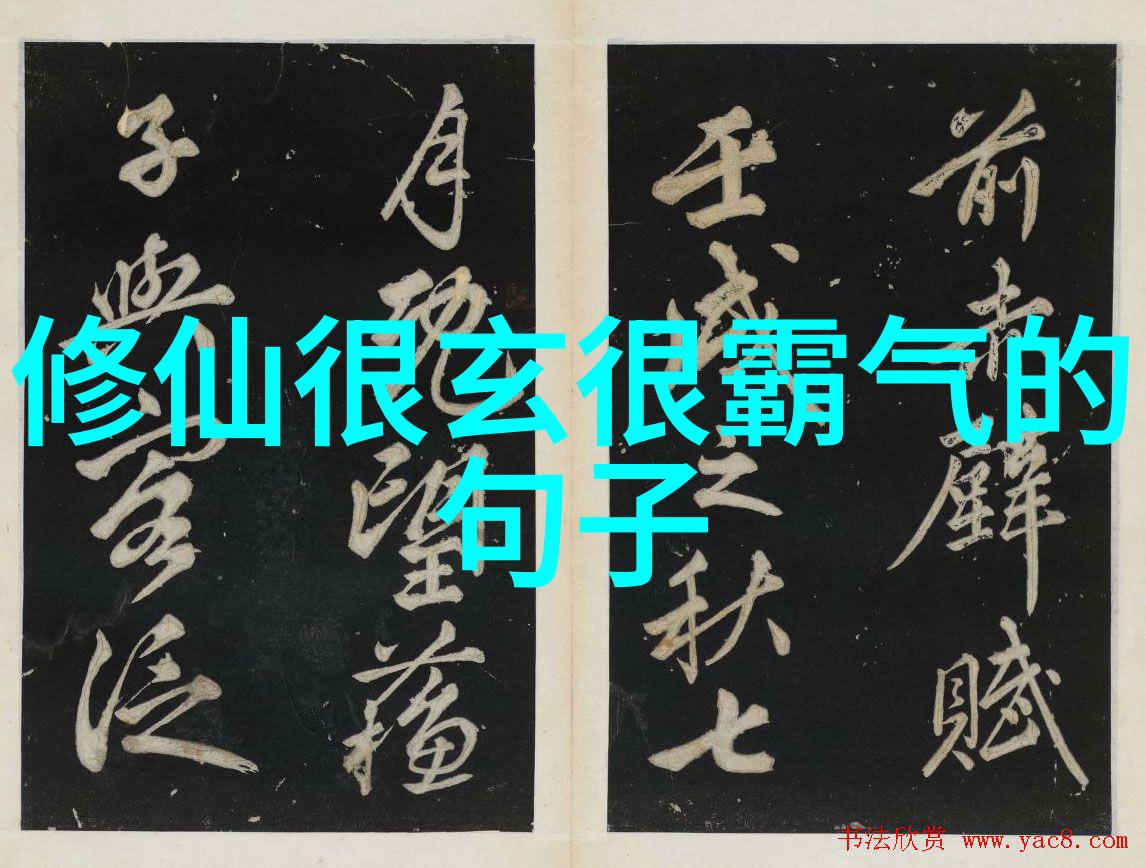 前赤壁賦
壬戌之秋七
月既望蘓
子與客泛
修仙很玄很霸气的
句子
书法欣赏 www.yac8.com